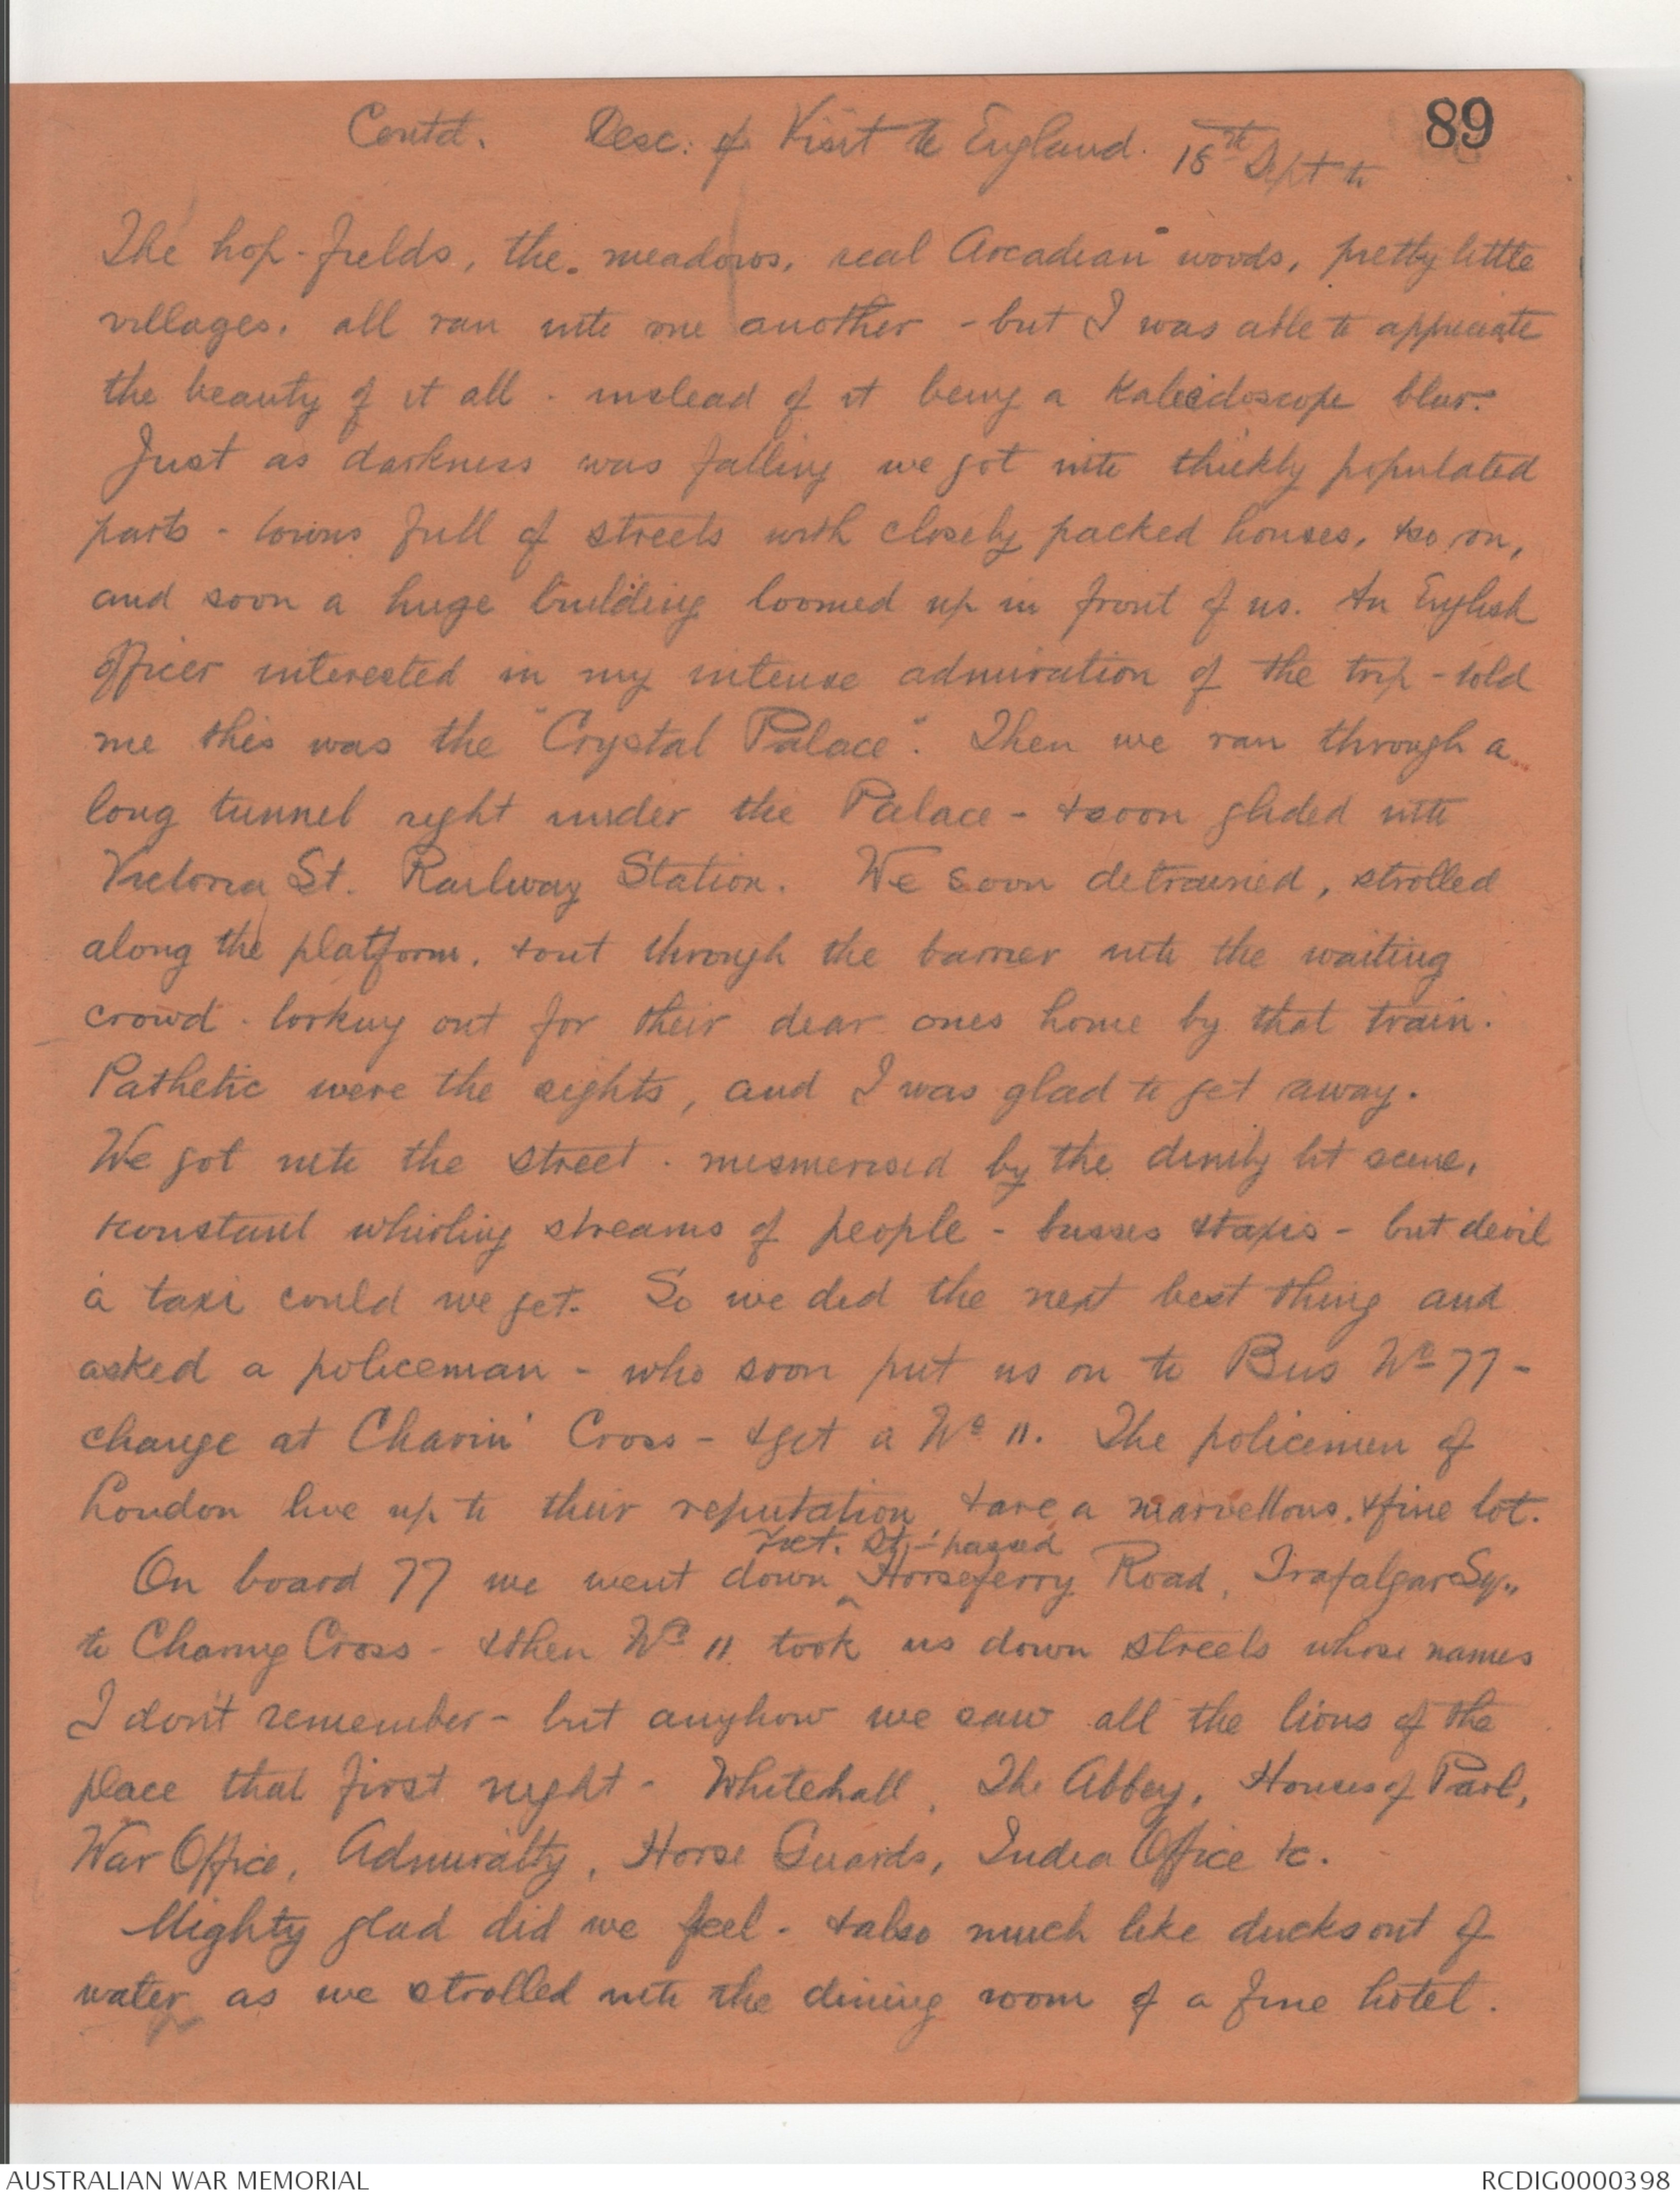 Contd. Desc: of Visit to England. 18th Sept to
89
The hop-fields, the meadows, real Arcadian woods, pretty little
villages, all ran into one another - but I was able to appreciate
the beauty of it all - instead of it being a Kaleidoscope blur.
Just as darkness was falling we got into thickly populated
parts - towns full of streets with closely packed houses, & so on,
and soon a huge building loomed up in front of us. An English
officer interested in my intense admiration of the trip - told
me this was the "Crystal Palace". Then we ran through a
long tunnel right under the Palace - & soon glided into
Victoria St. Railway Station. We soon detrained, strolled
along the platform, & out through the barrier into the waiting
crowd - looking out for their dear ones home by that train.
Pathetic were the sights, and I was glad to get away.
We got into the street - mesmerised by the dimly lit scene,
& constant whirling streams of people - busses & taxis - but devil
a taxi could we get. So we did the next best thing and
asked a policeman - who soon put us on to Bus No 77 -
change at Charin' Cross - & get a No 11. The policemen of
London live up to their reputation & are a marvellous, & fine lot.
Vict. St, - passed
On board 77 we went down ^ Horseferry Road, Trafalgar Sq.,
to Charing Cross - & then No 11 took us down streets whose names
I don't remember - but anyhow we saw all the lions of the
place that first night - Whitehall, The Abbey, Houses of Parl,
War Office, Admiralty, Horse Guards, India Office &c.
Mighty glad did we feel - & also much like ducks out of
water as we strolled into the dining room of a fine hotel.
AUSTRALIAN WAR MEMORIAL
RCDIG0000398